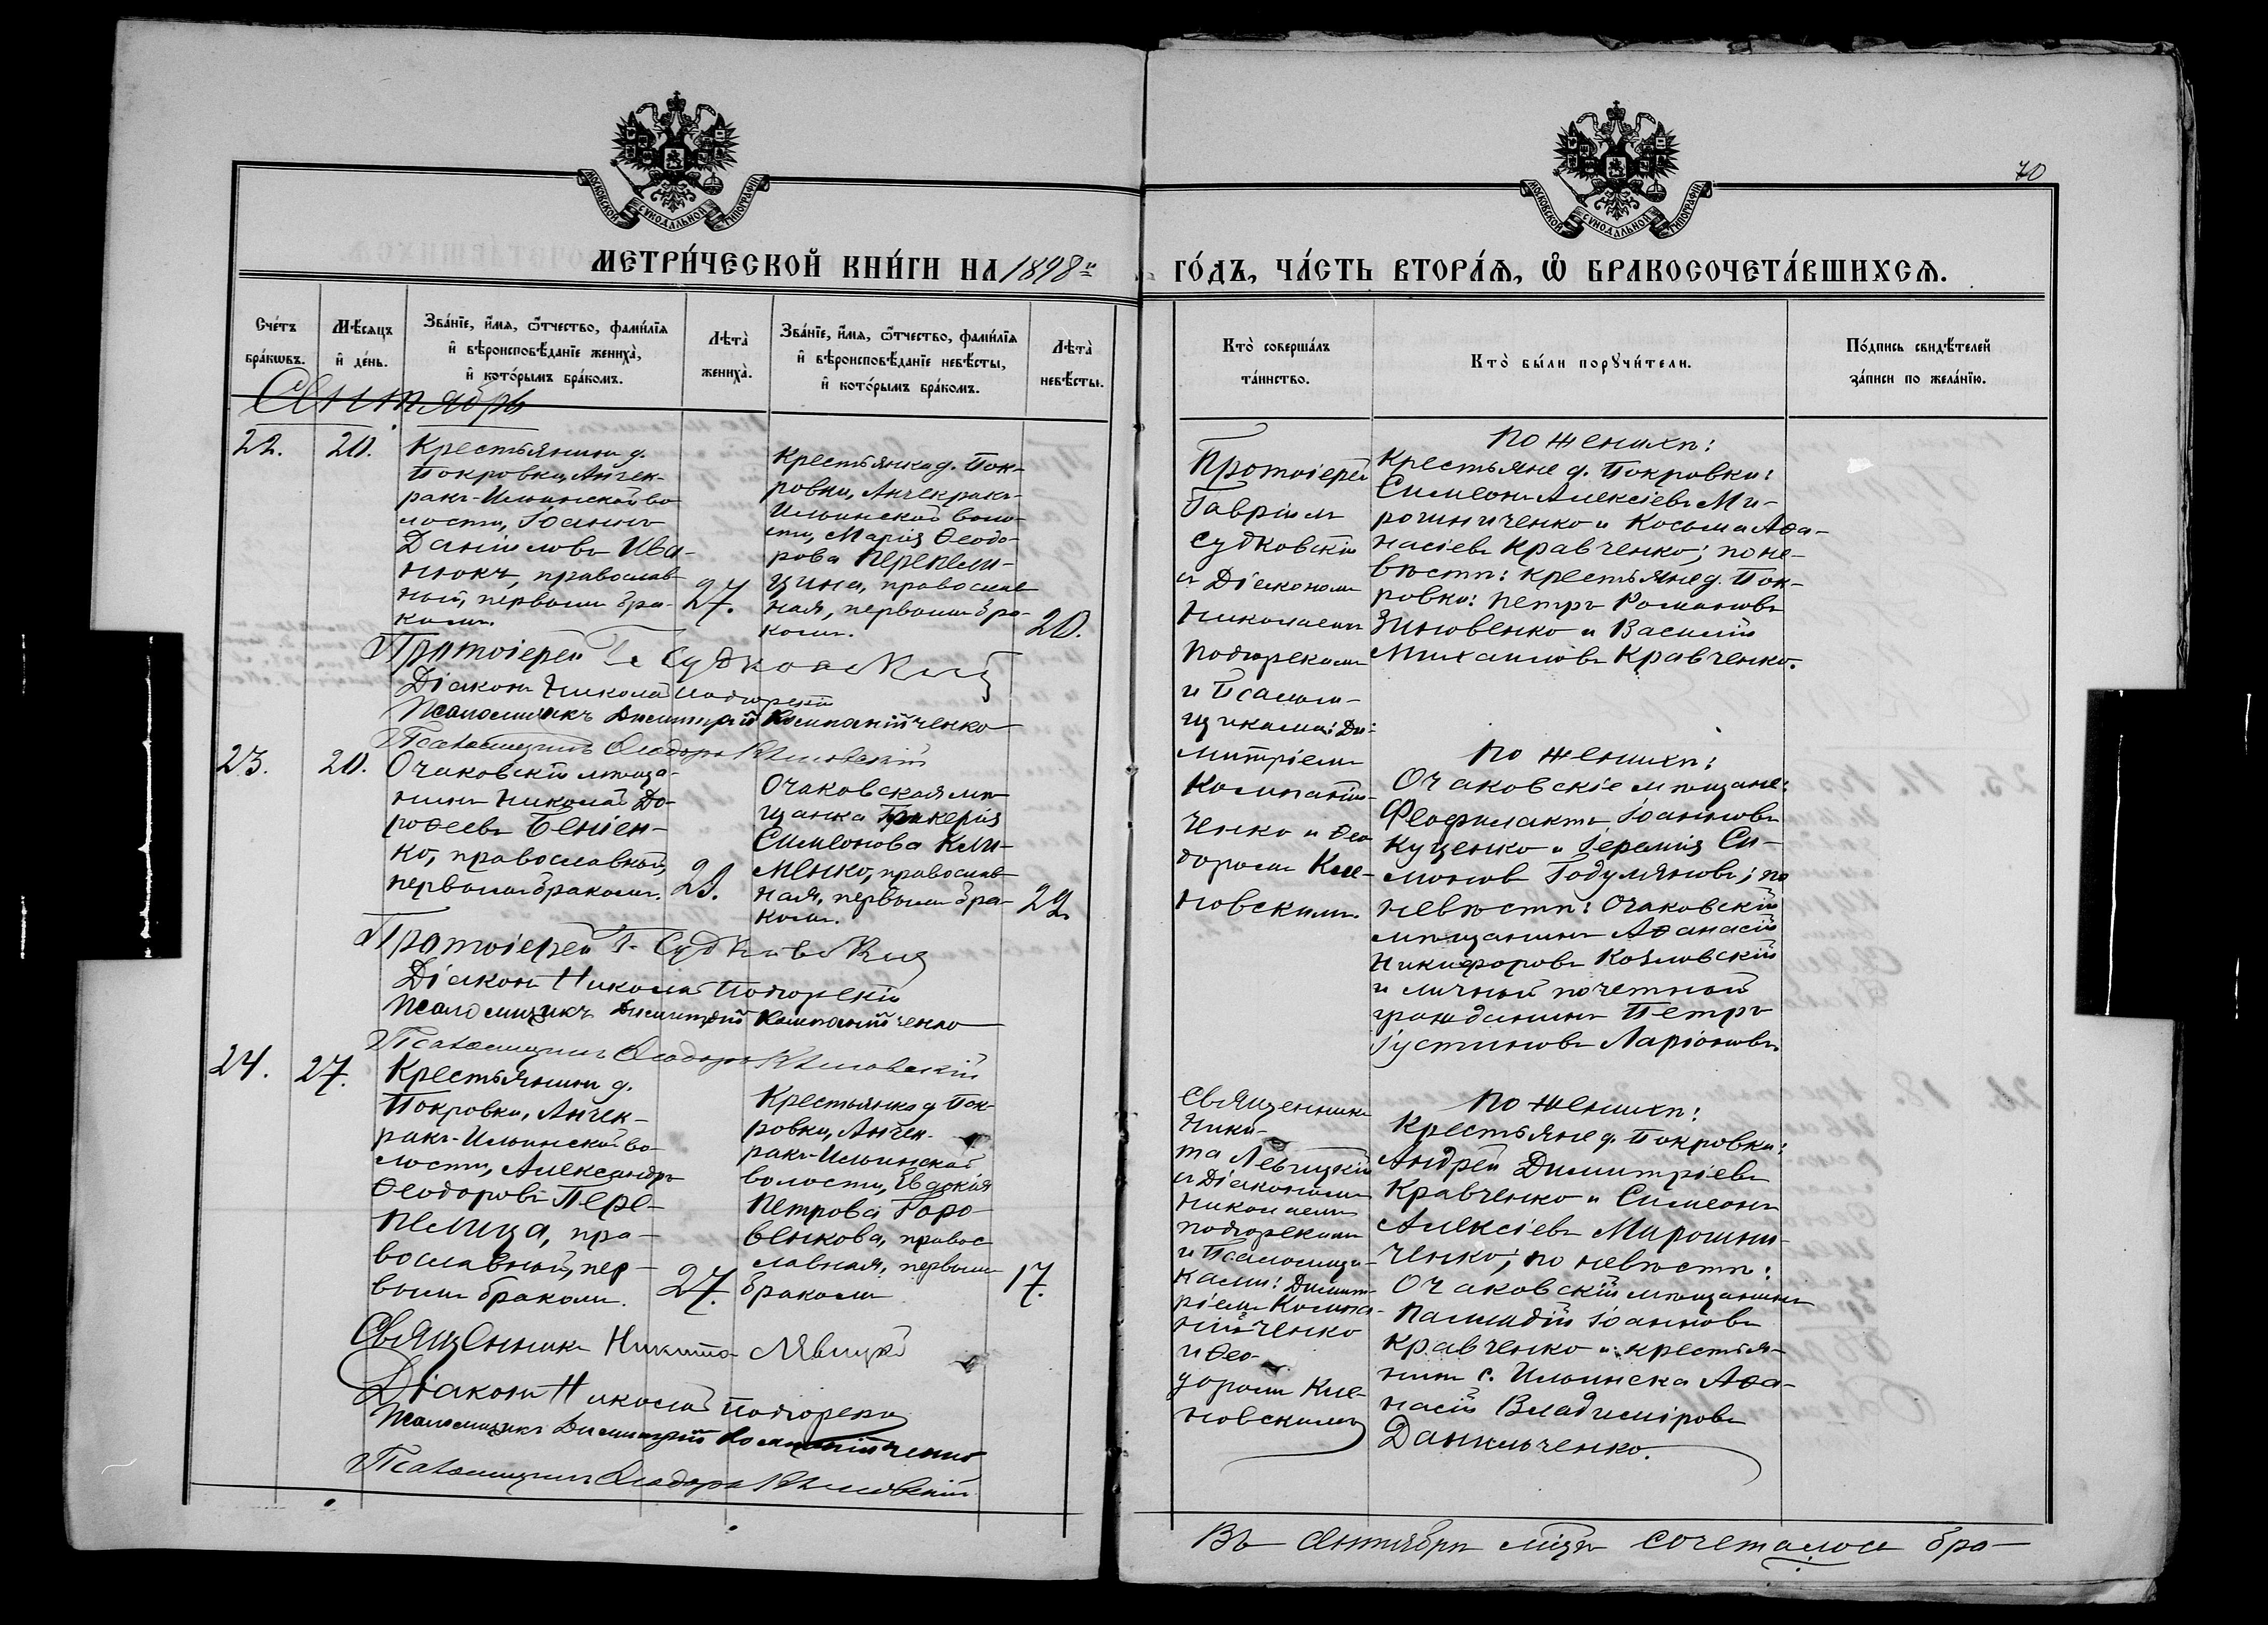 МОСКОВСКОЙ СѴНОДАЛЬНОЙ ТИПОГРАФІИ
МОСКОВСКОЙ СѴНОДАЛЬНОЙ ТИПОГРАФІИ
70
МЕТРИ́ЧЕСКОЙ КНИ́ГИ НА 1898й
ГО́ДЪ, ЧА́СТЬ ВТОРА́Я, Ѡ БРАКОСОЧЕТА́ВШИХСЯ.
Сче́тъ
бра́кѡвъ.
Мѣ́сяцъ
и де́нь.
Зва́нїе, и́мя, ѻ҆́тчество, фами́лїя
и вѣроисповѣ́данїе жениха̀,
и кото́рымъ бра́комъ.
Лѣта̀
жениха̀.
Зва́нїе, и́мя, ѻ҆́тчество, фами́лїя
и вѣроисповѣ́данїе невѣ́сты,
и кото́рымъ бра́комъ.
Лѣта̀
невѣ́сты.
Кто̀ соверша́лъ
та́инство.
Кто̀ бы́ли порꙋчи́тели.
По́дпись свидѣ́телей
за́писи по жела́нїю.
Сентябрь
22.
20.
Крестьянинъ д.
Покровки, Анчек-
ракъ-Ильинской во
лости, Іоаннъ
Даніиловъ Ива-
нюкъ, православ
ный, первымъ бра-
комъ.
27.
Крестьянка д. Пок-
ровки, Анчекракъ-
Ильинской воло
сти, Марія Ѳеодо-
рова Перепели-
цина, православ
ная, первымъ бра-
комъ.
20.
Протоіерей Г. Судковскій
Діаконъ Николай Подгорскій
Псаломщикъ Димитрій Компанійченко
Псаломщикъ Ѳеодоръ Клиновскій
23.
20.
Очаковскій мѣща-
нинъ Николай До-
роѳеевъ Беніен-
ко, православный,
первымъ бракомъ.
29.
Очаковская мѣ
щанка Гликерія
Симеонова Кли-
менко, православ
ная, первымъ бра-
комъ.
22
Протоіерей Г. Судковскій
Діаконъ Николай Подгорскій
Псаломщикъ Димитрій Компанійченко
Псаломщикъ Ѳеодоръ Клиновскій
24.
27.
Крестьянинъ д.
Покровки, Анчек-
ракъ-Ильинской во-
лости, Александръ
Ѳеодоровъ Пере-
пелица, пра-
вославный, пер-
вымъ бракомъ.
27.
Крестьянка д. Пок-
ровки, Анчек-
ракъ-Ильинской
волости, Евдокія
Петрова Горо-
венкова, правос
лавная, первымъ
бракомъ
17.
Священникъ Никита Лѣвицкій
Діаконъ Николай Подгорскій
Псаломщикъ Димитрій Компанійченко
Псаломщикъ Ѳеодоръ Клиновскій
Протоіерей
Гавріилъ
Судковскій
съ Діакономъ
Николаемъ
Подгорскимъ
и Псалом-
щиками: Ди-
митріемъ
Компаній-
ченко и Ѳео
доромъ Кли-
новскимъ.
По женихѣ:
Крестьяне д. Покровки:
Симеонъ Алексіевъ Ми-
рошниченко и Косьма Аѳа-
насіевъ Кравченко; по не-
вѣстѣ: крестьяне д. Пок-
ровки: Петръ Романовъ
Зиновенко и Василій
Михаиловъ Кравченко.
По женихѣ:
Очаковскіе мѣщане:
Ѳеофилактъ Іоанновъ
Куценко и Іеремія Си-
моновъ Годумяновъ; по
невѣстѣ: Очаковскій
мѣщанинъ Аѳанасій
Никифоровъ Козловскій
и личный почетный
гражданинъ Петръ
Іустиновъ Ларіоновъ.
Священникъ
Ники-
та Левицкій
съ Діакономъ
Николаемъ
Подгорскимъ
и Псаломщи-
ками: Димит-
ріемъ Компа-
нійченко
и Ѳео-
доромъ Кли-
новскимъ
По женихѣ:
Крестьяне д. Покровки:
Андрей Димитріевъ
Кравченко и Симеонъ
Алексіевъ Мирошни-
ченко; по невѣстѣ:
Очаковскій мѣщанинъ
Палладій Іоанновъ
Кравченко и крестья-
нинъ с. Ильинска Аѳа-
насій Владиміровъ
Данильченко.
Въ Сентябрѣ мѣсяцѣ сочеталось бра-